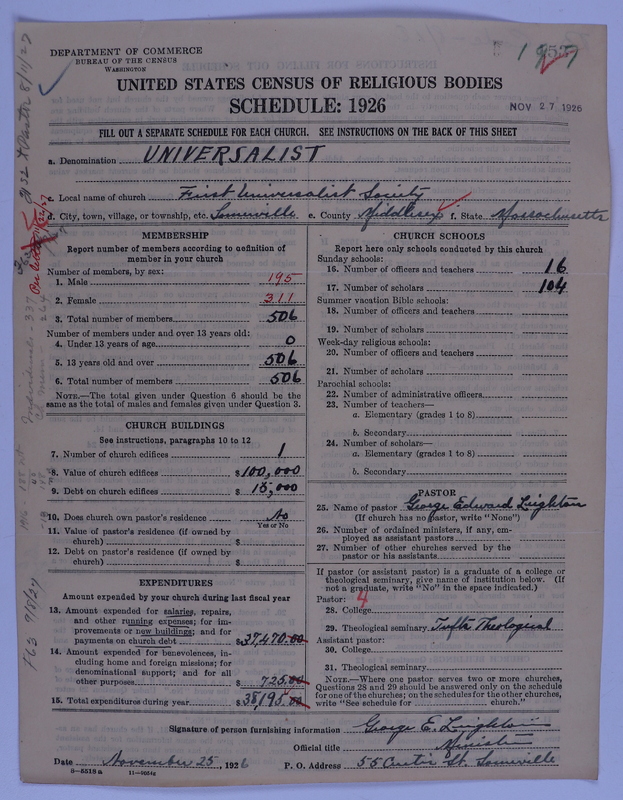 DEPARTMENT OF COMMERCE
BUREAU OF THE CENSUS
WASHINGTON
UNITED STATES CENSUS OF RELIGIOUS BODIES
SCHEDULE: 1926
NOV 27 1926
FILL OUT A SEPARATE SCHEDULE FOR EACH CHURCH. SEE INSTRUCTIONS ON THE BACK OF THIS SHEET
a. Denomination UNIVERSALIST
c. Local name of church First Universalist Society
d. City, town, village, or township, etc. Somerville e. County Middlesex f. State Massachusetts
MEMBERSHIP
Report number of members according to definition of
member in your church
Number of members, by sex:
1. Male 195
2. Female 311
3. Total number of members 506
Number of members under and over 13 years old:
4. Under 13 years of age 0
5. 13 years old and over 506
6. Total number of members 506
NOTE.—The total given under Question 6 should be
same as the total of males and females given under Question 3.
CHURCH BUILDINGS
See instructions, paragraphs 10 to 12
7. Number of church edifices 1
8. Value of church edifices $100,000
9. Debt on church edifices $15,000
10. Does church own pastor's residence No
Yes or No
11. Value of pastor's residence (if owned by
church) $
12. Debt on pastor's residence (if owned by
church) $
EXPENDITURES
Amount expended by your church during last fiscal year
13. Amount expended for salaries, repairs,
and other running expenses; for im-
provements or new buildings; and for
payments on church debt $37,470.00
14. Amount expended for benevolences, in-
cluding home and foreign missions; for
denominational support; and for all
other purposes $725.00
15. Total expenditures during year $38,195.00
CHURCH SCHOOLS
Report here only schools conducted by this church
Sunday schools:
16. Number of officers and teachers 16
17. Number of scholars 104
Summer vacation Bible schools:
18. Number of officers and teachers
19. Number of scholars
Week-day religious schools:
20. Number of officers and teachers
21. Number of scholars
Parochial schools:
22. Number of administrative officers
23. Number of teachers—
a. Elementary (grades 1 to 8)
b. Secondary
24. Number of scholars—
a. Elementary (grades 1 to 8)
b. Secondary
PASTOR
25. Name of pastor George Edward Leighton
(If church has no pastor, write "None")
26. Number of ordained ministers, if any, em-
ployed as assistant pastors
27. Number of other churches served by the
pastor or his assistants
If pastor (or assistant pastor) is a graduate of a college or
theological seminary, give name of institution below. (If
not a graduate, write "No" in the space indicated.)
Pastor: 4
28. College
29. Theological seminary Tufts Theological
Assistant pastor:
30. College
31. Theological seminary
NOTE.—Where one pastor serves two or more churches,
Questions 28 and 29 should be answered only on the schedule
for one of the churches; on the schedules for the other churches,
write "See schedule for church."
Signature of person furnishing information George E. Leighton
Official title Minister
Date November 25, 1926 P. O. Address 55 Curtis St. Somerville
8—5518a 11—9034